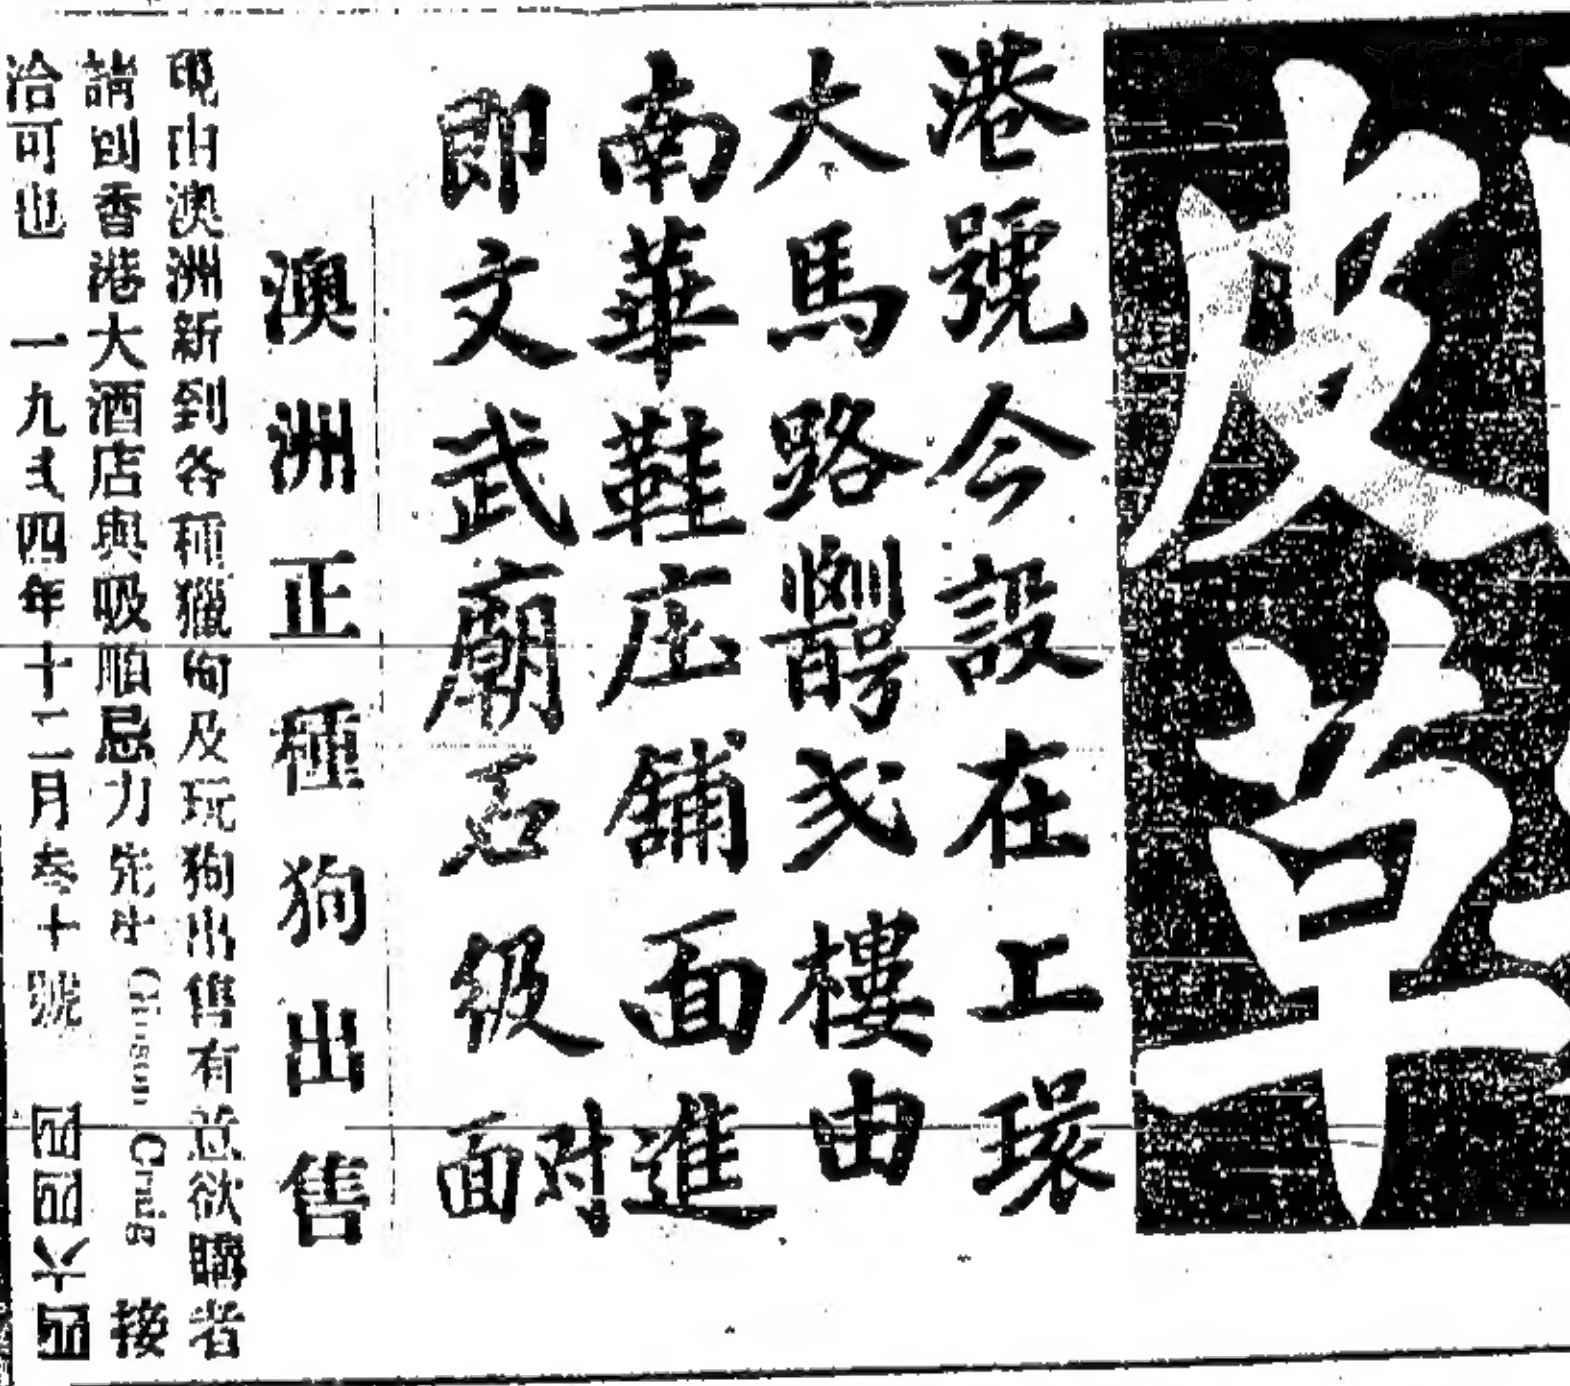 皮草
港號今設在上環
大馬路門牌弍樓由
南華鞋庄舖面進
即文武廟石級對面
澳洲正種狗出售
現由澳洲新到各種獵狗及玩狗出售有意欲購者
請到香港大酒店與吸順忌力先生 Gibson Craig 接
洽可也 一九弍四年十二月叁十號 四四四六四